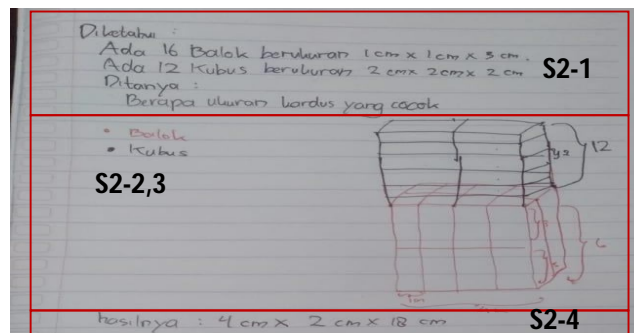 Diketahui :
Ada 16 Balok berukuran 1 cm x 1 cm x 3 cm.
Ada 12 Kubus berukuran 2 cm x 2 cm x 2 cm
S2-1
Ditanya :
Berapa ukuran kardus yang cocok
• Balok
• Kubus
S2-2,3
12
6
hasilnya : 4 cm x 2 cm x 18 cm
S2-4